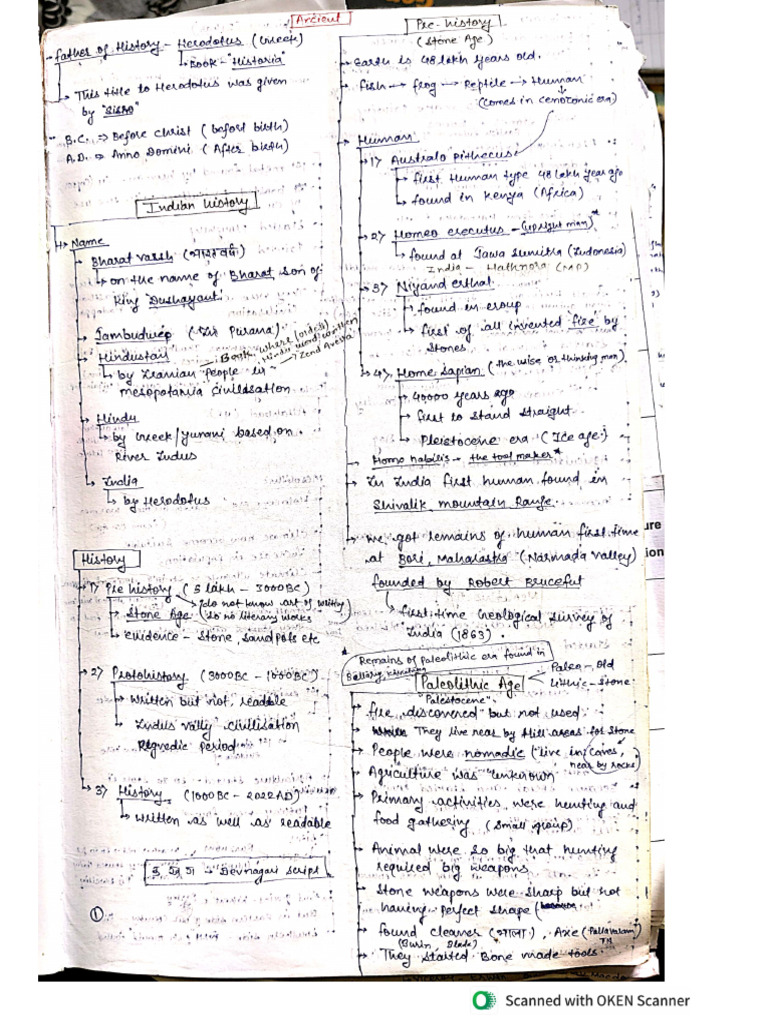 Ancient
Father of History - Herodotus (Greek)
Book - "Historia"
This title to Herodotus was given
by "Sisro"
B.C. => Before Christ (before birth)
A.D. => Anno Domini (After birth)
Indian history
Name
Bharat varsh (भारतवर्ष)
on the name of Bharat son of
King "Dushayant"
Jambudweep (Purana)
Hindustan
Book where (oldest)
Hindu word written
Zend Avesta
by Iranian People in
mesopotamia civilisation
Hindu
by Greek/yunani based on
River Indus
India
by Herodotus
History
1) Pre history (5 lakh - 3000BC)
do not know art of writing
Stone Age (So no literary works
evidence - Stone, Sandpots etc
2) Protohistory (3000BC - 1000BC)
written but not readable
Indus vally civilisation
Rigvedic Period
3) History (1000BC - 2022AD)
written as well as readable
Devnagari Script
①
Pre-history
(Stone Age)
Earth is 48 lakh years old.
fish → frog → Reptile → Human
(comes in cenozonic era)
Human
1) Australo pithecus:
first Human type 48 lakh year ago
found in Kenya (Africa)
2) Homeo erecutus - (upright man)*
found at Jawa Sumitra (Indonesia)
India - Hathnora (MP)
3) Niyand erthal
found in eroup
first of all invented fire by
Stones
4) Home Sapian (the wise or thinking man)
40000 years ago
first to stand straight
Pleistocene era (Ice age)
Homo habilis - the tool maker*
In India first human found in
Shivalik mountain Range.
we got remains of human first time
at Bori, Maharastra (Narmada valley)
founded by Robert Brucefut
first time Geological Survey of
India (1863).
* Remains of Paleolithic era found in
Bellary,
Paleolithic Age
Paleo - old
lithic - Stone
"Palestocene"
fire discovered but not used.
They live near by Hill areas for Stone
People were nomadic (live in caves,
near by rocks)
Agriculture was "unknown"
Primary activities were hunting and
food gathering (small group)
Animal were so big that hunting
required big weapons
Stone weapons were sharp but not
having Perfect shape
found cleaner, Axe (Pallavaram)
TN
(Burin, Blade)
They started Bone made tools.
Scanned with OKEN Scanner